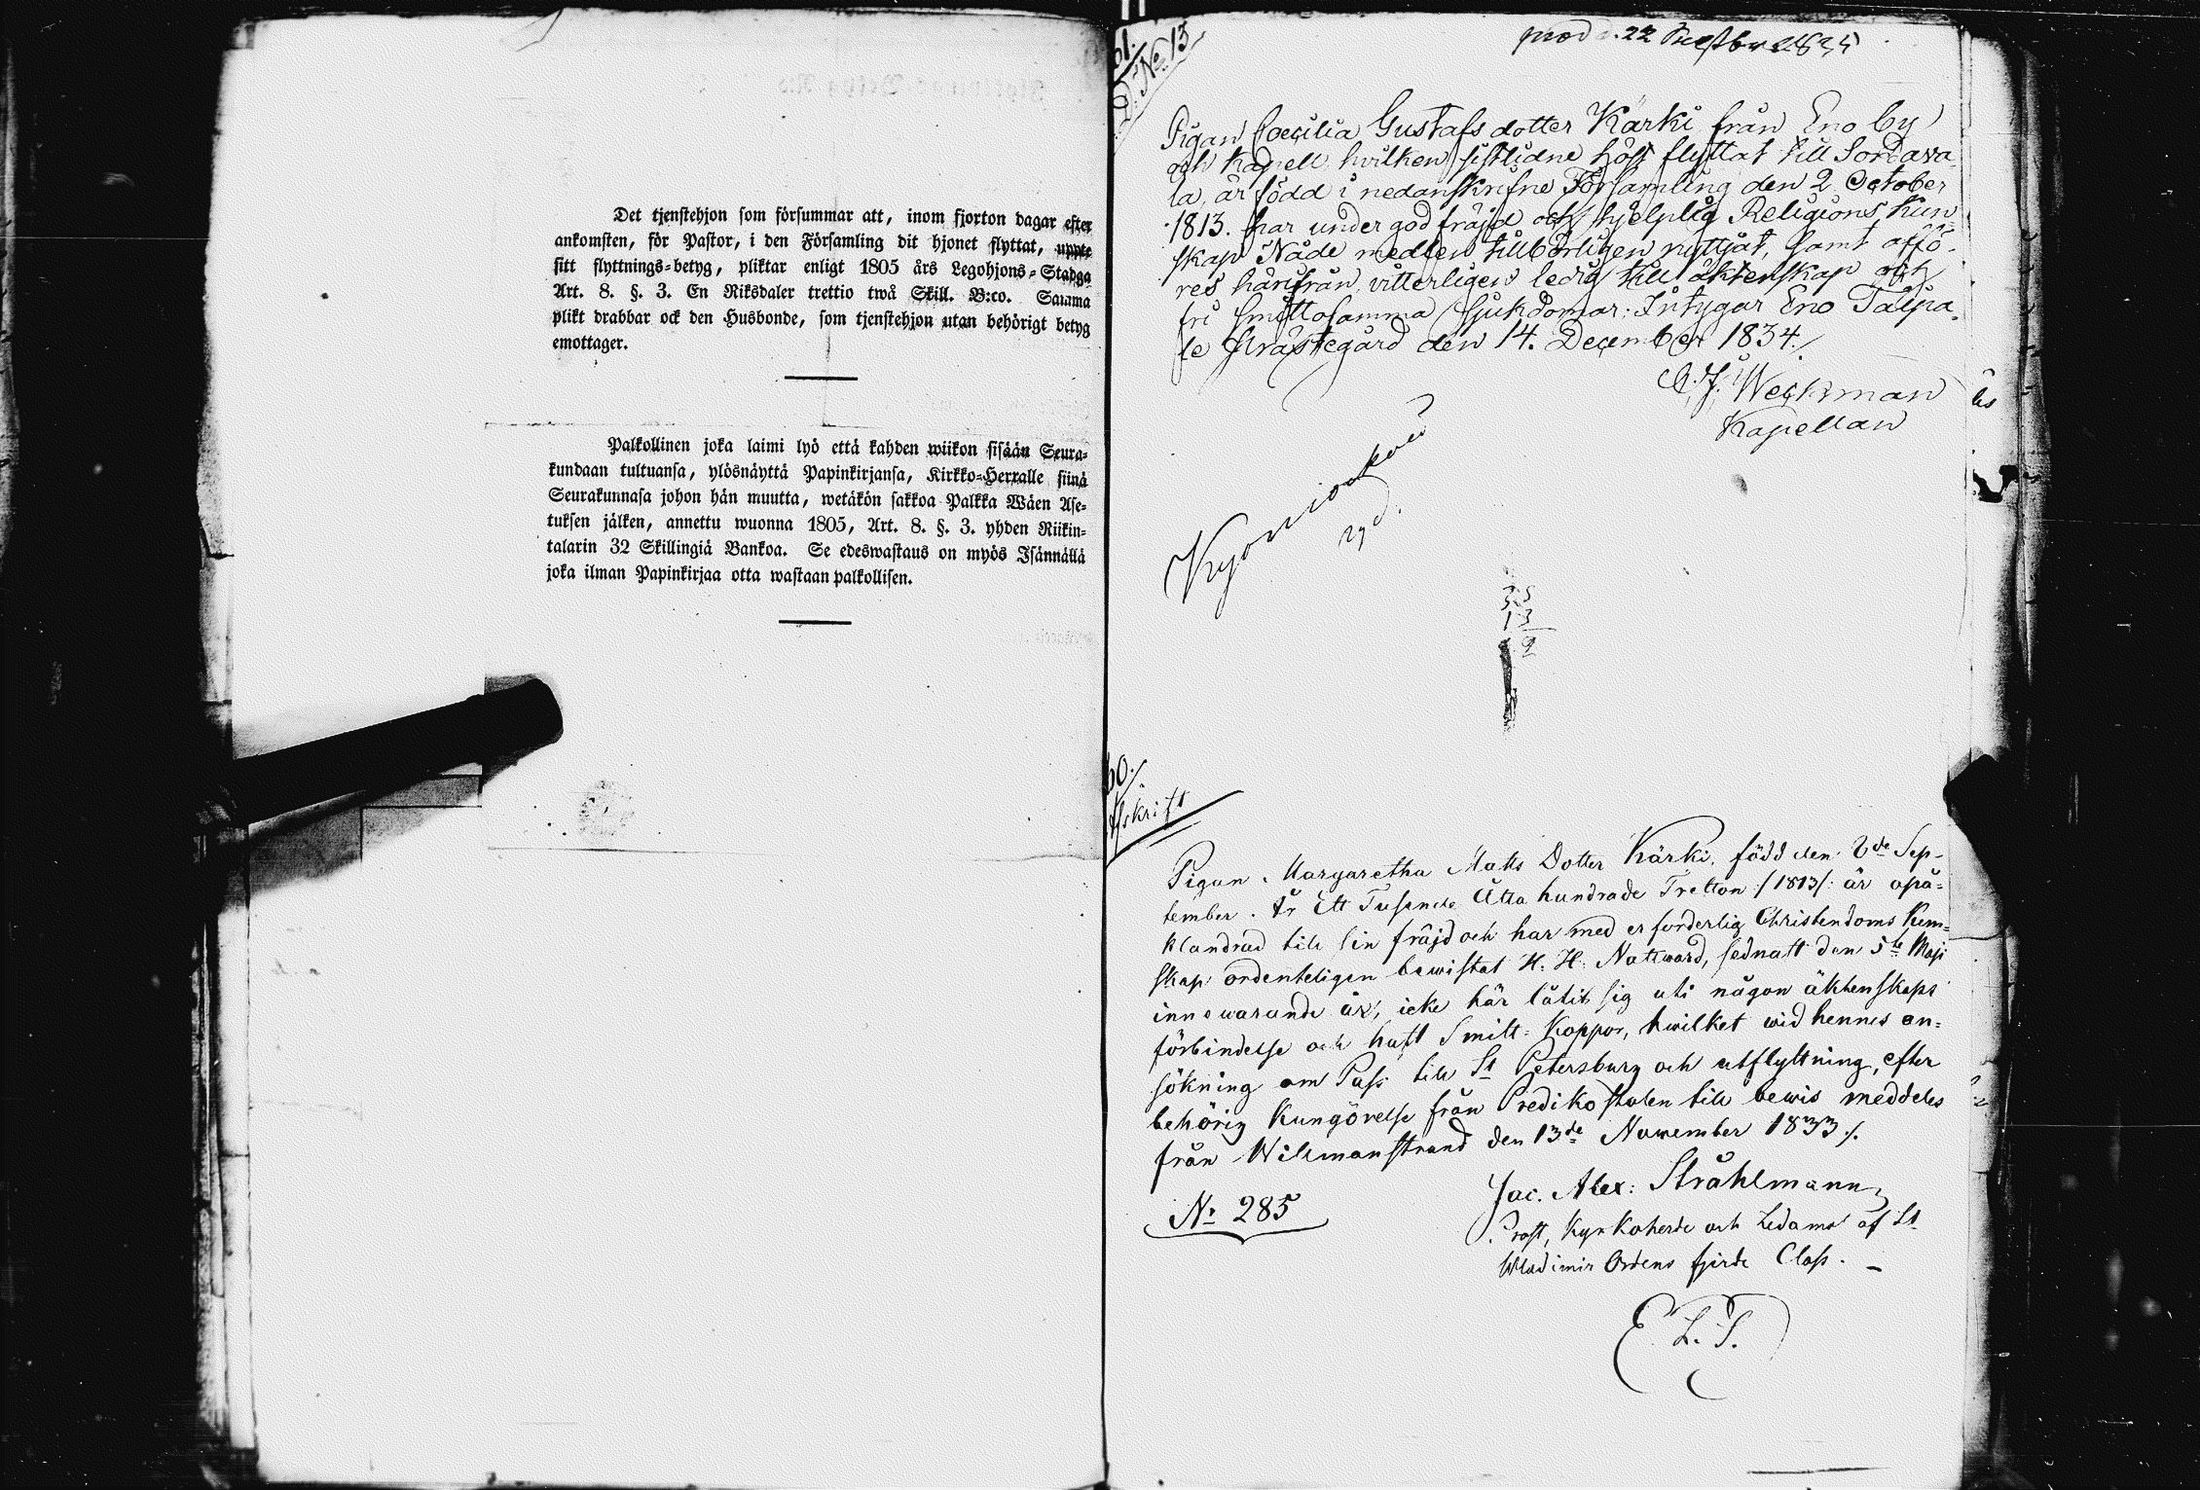 Det tjenstehjon som försummar att, inom fjorton dagar efter
ankomsten, för Pastor, i den Församling dit hjonet flyttat, uppte
sitt flyttnings=betyg, pliktar enligt 1805 års Legohjons=Stadga
Art. 8. §. 3. En Riksdaler trettio twå Skill. B:co. Samma
plikt drabbar ock den Husbonde, som tjenstehjon utan behörigt betyg
emottager.
Palkollinen joka laimi lyö että kahden wiikon sisään Seura=
kundaan tultuansa, ylösnäyttä Papinkirjansa, Kirkko=Herralle siinä
Seurakunnasa johon hän muutta, wetäkön sakkoa Palkka Wäen Ase=
tuksen jälken, annettu wuonna 1805, Art. 8. §. 3. yhden Riikin=
talarin 32 Skillingiä Bankoa. Se edeswastaus on myös Isännällä
joka ilman Papinkirjaa otta wastaan palkollisen.
61.
D. No. 13
22
Pigan Coecilia Gustafs dotter Kärki från Eno by
och Kapell hvilken sistlidne höst flyttat till Sordava
la, är född i nedanskrifne Församling den 2 October
1813. har under god fräjd och hjelplig Religions Kun
skap Nåde medlen tillbörligen nyttjat, samt affö-
res härifrån, vitterligen ledig till äktenskap och
fri smittosamma sjukdomar: Intygar Eno Taipa
le Prästegård den 14. December 1834./.
Weckman
Kapellan
60./.
Afskrift
Pigan Margaretha Matts Dotter Kärki, född den 2de Sep-
tember År Ett Tusende Åtta hundrade Tretton /:1813/: är opå=
klandrad till sin fräjd och har med erforderlig Christendoms Kun=
skap ordenteligen bewistat H. H. Nattward, sednast den 5te Maji
innewarande år, icke här låtit sig uti någon äktenskaps
förbindelse och haft Smitt=Koppor, hwilket wid hennes an=
sökning om Pass till St Petersburg och utflyttning, efter
behörig Kungörelse från Prediko stolen till bewis meddeles
från Wilmanstrand den 13de November 1833 /.
Jac. Alex: Stråhlmann
Prost, Kyrkoherde och Ledamot af St
Wladimir Ordens fjerde Class. –
No 285
L. S.